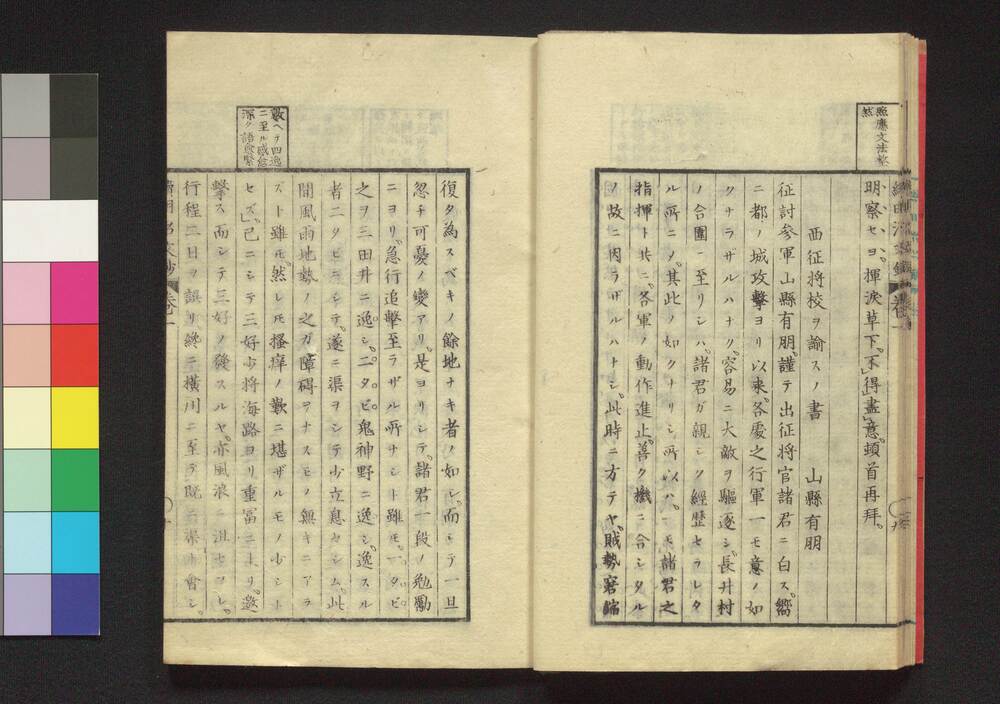 照應文法整
然
明察セヨ。揮淚草下。不得盡意。頓首再拜。
西征将校ヲ諭スノ書　山縣有朋
征討参軍山縣有朋。謹テ出征将官諸君ニ白ス。嚮
ニ都ノ城攻撃ヨリ以来。各處之行軍一モ意ノ如
クナラザルハナク。容易ニ大敵ヲ驅逐シ。長井村
ノ合圍ニ至リシハ。諸君ガ親シク經歴セラレタ
ル所ニノ。其此ノ如クナリシ所以ハ。一モ諸君之
指揮ト共ニ。各軍ノ動作進止。善ク機ニ合シタル
ノ故ニ因ラザルハトシ。此時ニ方テヤ。賊勢窘縮
數ヘテ四逸
ニ至ル感慨
深ク語愈緊
復タ為スベキノ餘地ナキ者ノ如シ。而シテ一旦
忽チ可憂ノ變アリ。是ヨリシテ。諸君一段ノ勉勵
ニヨリ。急行追撃至ラザル所ナシト雖モ。一タビ
之ヲ三田井ニ逸シ。二タビ鬼神野ニ逸シ。逸スル
者二タビニシテ。遂ニ渠ヲシテ少立息セシム。此
間風雨地勢ノ之ガ障碍ヲナスモノ無キニアラ
ズト雖モ。然レモ搔痒ノ歎ニ堪ザルモノ少シト
セズ。已ニシテ三好少将海路ヨリ重冨ニ上リ。邀
撃ス而シテ三好ノ發スルヤ。亦風浪ニ沮セラレ。
行程二日ヲ誤リ終ニ横川ニ至テ既ニ渠ト會シ。
卷一